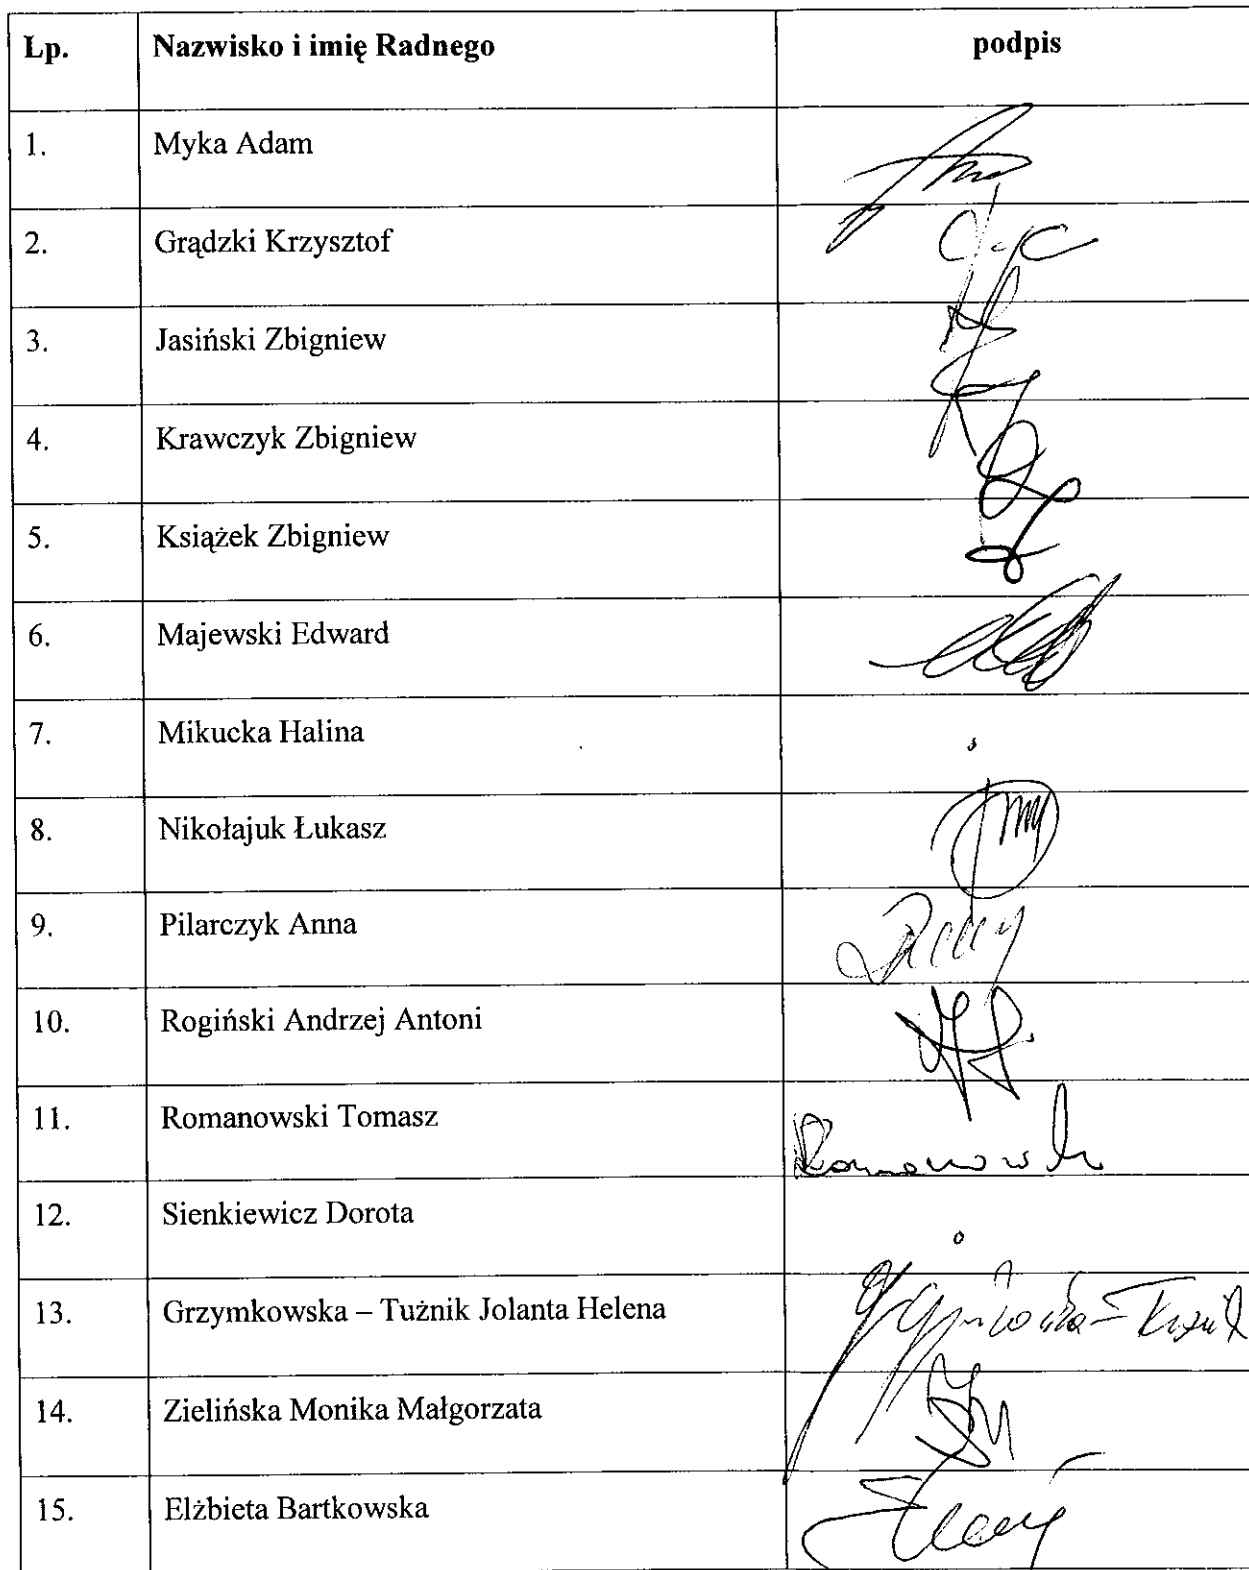 Lp. Nazwisko i imię Radnego podpis
1. Myka Adam
2. Grądzki Krzysztof
3. Jasiński Zbigniew
4. Krawczyk Zbigniew
5. Książek Zbigniew
6. Majewski Edward
7. Mikucka Halina
8. Nikołajuk Łukasz
9. Pilarczyk Anna
10. Rogiński Andrzej Antoni
11. Romanowski Tomasz Romanowski
12. Sienkiewicz Dorota
13. Grzymkowska – Tużnik Jolanta Helena
14. Zielińska Monika Małgorzata
15. Elżbieta Bartkowska